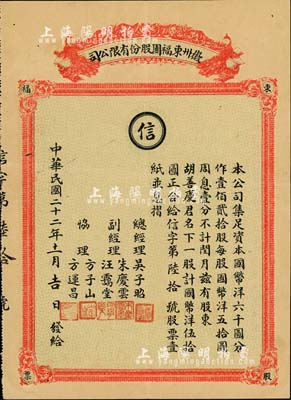 上海陽明拍賣
徽州東福園股份有限公司
東
福
信
本公司集足資本國幣洋六十圓分
作壹佰貳拾股每股國幣洋五拾圓
周息壹分不計閏月茲有股東
胡善慶君名下一股計國幣洋伍拾
圓正合給信字第陸拾號股票壹
紙並息摺
總經理吳子昭
副經理朱慶雲
汪靄堂
協理方子山
方運昌
中華民國二十二年十一月吉日發給
股
票
上海陽明拍賣